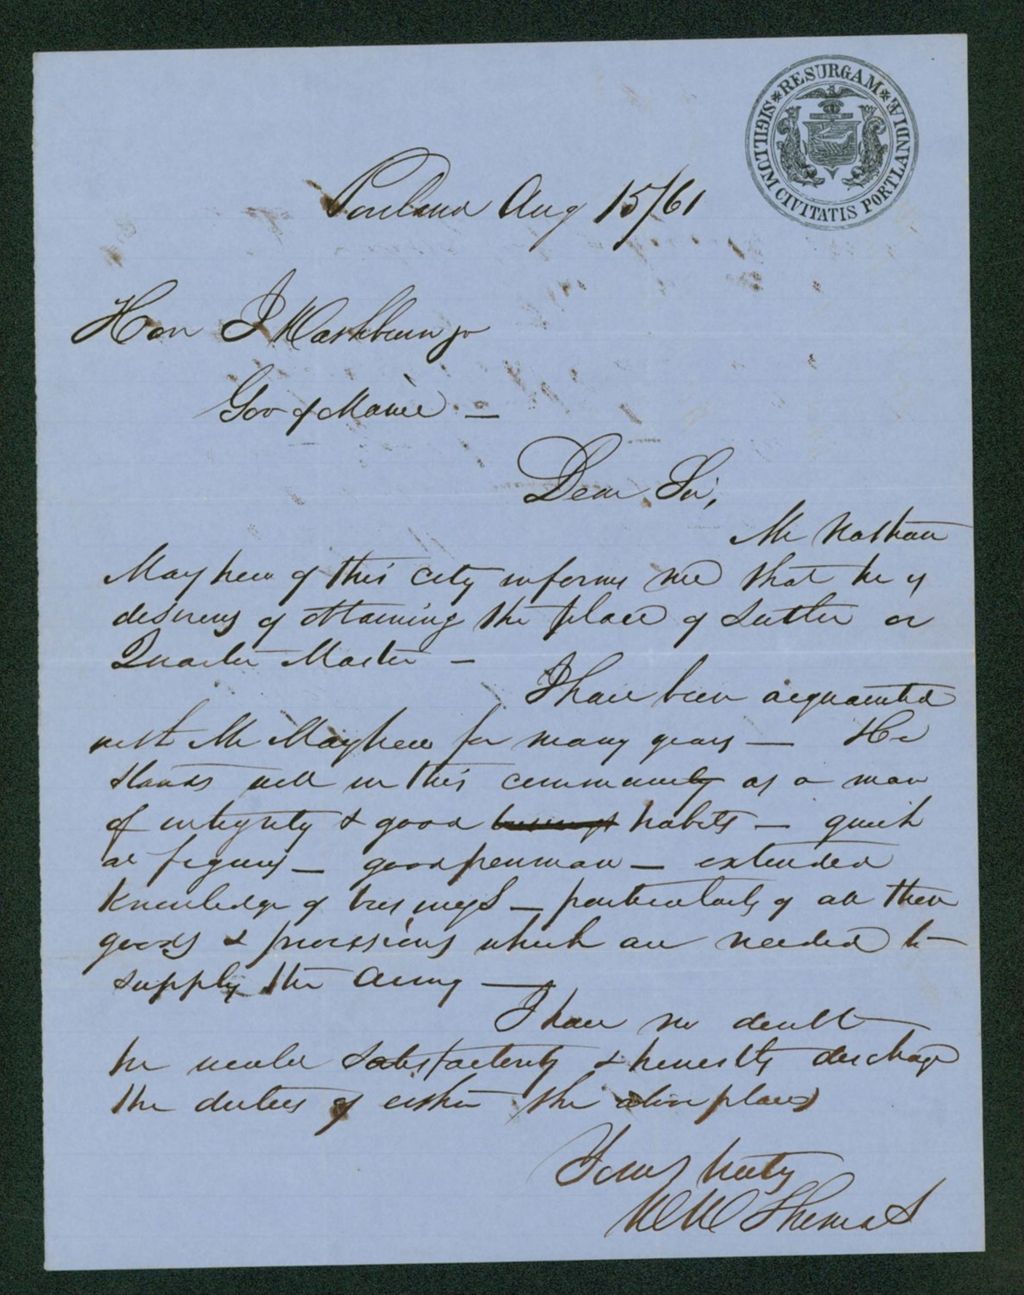 SIGILLUM CIVITATIS PORTLANDIÆ * RESURGAM *
Portland Aug 15/61
Hon I Washburn jr
Gov of Maine —
Dear Sir,
Mr Nathan
Mayhew of this city informs me that he is
desirous of obtaining the place of Sutler or
Quarter Master —
I have been acquainted
with Mr Mayhew for many years — He
stands well in this community as a man
of integrity & good business habits — quick
at figures — good penman — extended
knowledge of business — particularly of all those
goods & provisions which are needed to
supply the Army —
I have no doubt
he would satisfactorily & honestly discharge
the duties of either the above places
Yours truly
W W Thomas